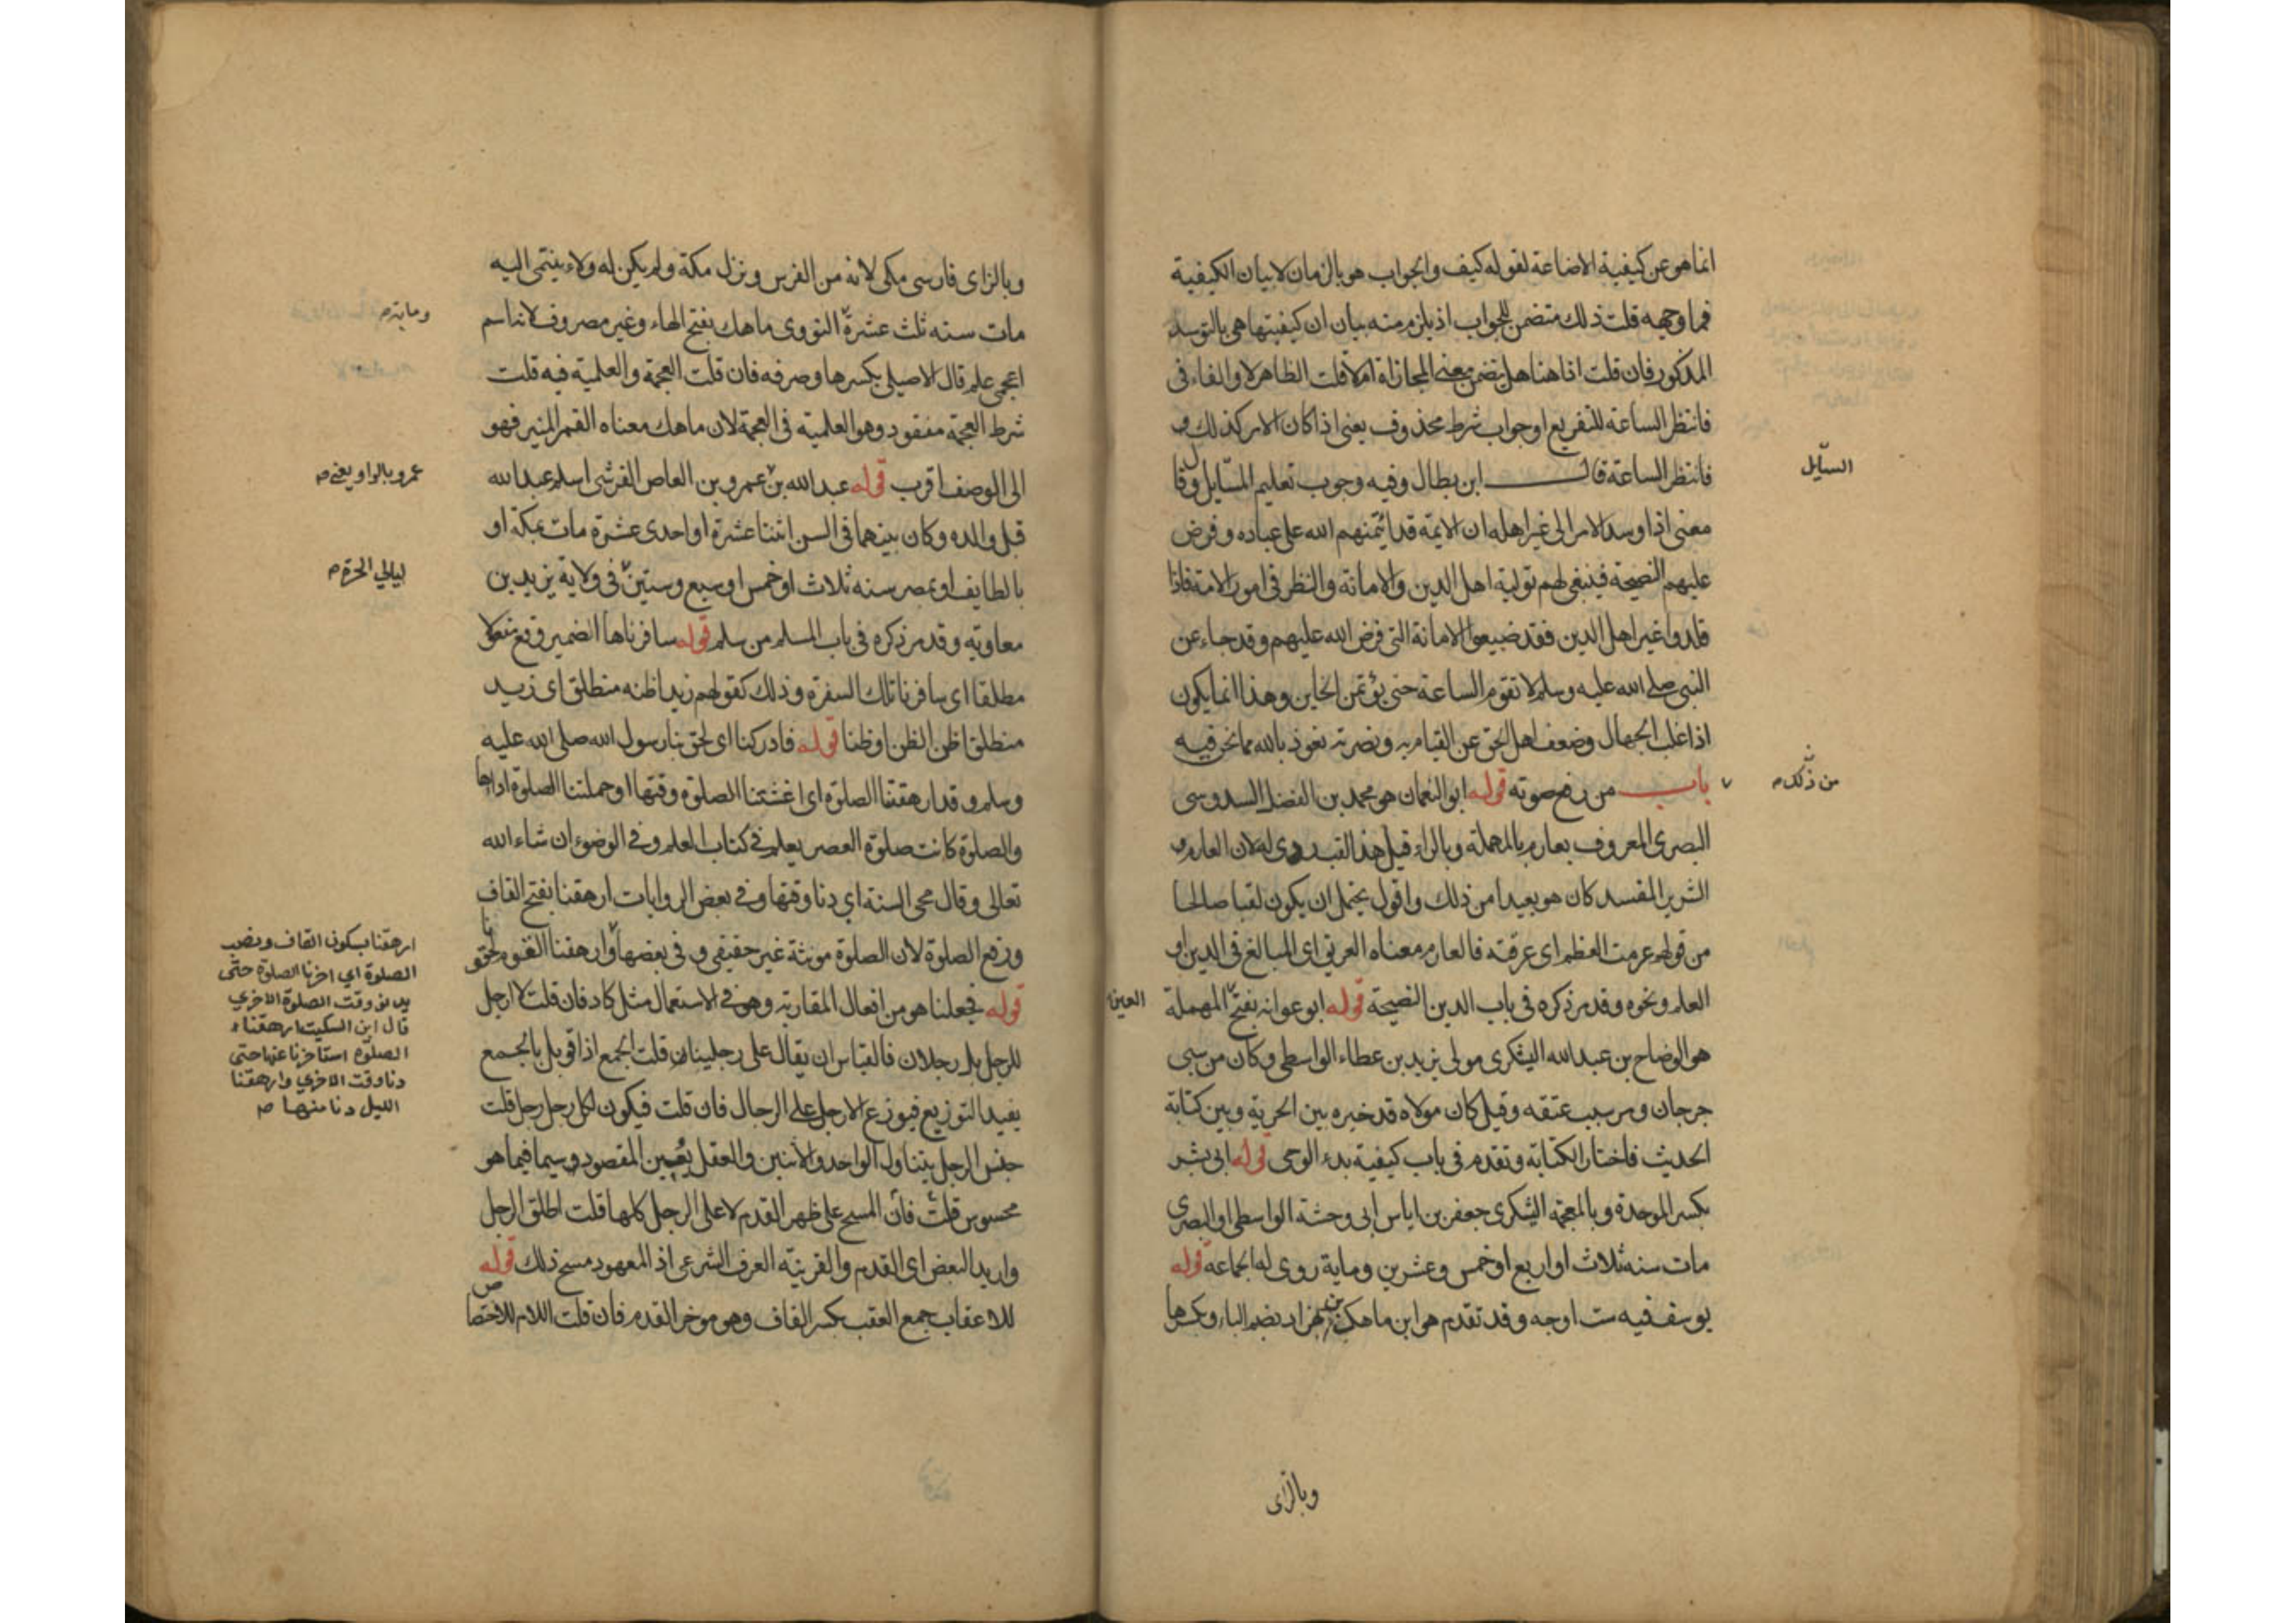 انما هو عن كيفية الاضاعة لقوله كيف والجواب هو بالزمان لا بيان الكيفية
فما وجهه قلت ذلك متضمن للجواب اذ يلزم منه بيان ان كيفيتها هي بالتوسد
المذكور فان قلت اذا هنا هل يتضمن معنى المجازاة ام لا قلت الظاهر لا والفاء في
فانتظر الساعة للتفريع او جواب شرط محذوف يعني اذا كان الامر كذلك
فانتظر الساعة قال ابن بطال وفيه وجوب تعليم السايل وقال
السآيل
معنى اذا وسد الامر الى غير اهله ان الايمة قد ائتمنهم الله على عباده وفرض
عليهم النصيحة فينبغي لهم تولية اهل الدين والامانة والنظر في امور الامة فاذا
قلدوا غير اهل الدين فقد ضيعوا الامانة التي فرض الله عليهم وقد جاء عن
النبي صلى الله عليه وسلم لا تقوم الساعة حتى يؤتمن الخاين وهذا انما يكون
اذا غلب الجهال وضعف اهل الحق عن القيام به ونصرته نعوذ بالله مما نحن فيه
باب من رفع صوته قوله ابو النعمان هو محمد بن الفضل السدوسي
من ذلك
البصري المعروف بعارم بالمهملة وبالراء قيل هذا لقب ردي له لان العارم
الشرير المفسد كان هو بعيدا من ذلك واقول يحتمل ان يكون لقبا صالحا
من قولهم عرمت العظم اى عرقته فالعارم معناه العرق اى المبالغ في الدين او
العلم ونحوه وقد مر ذكره في باب الدين النصيحة قوله ابو عوانه بفتح المهملة
العين
هو الوضاح بن عبدالله اليشكرى مولى يزيد بن عطاء الواسطي وكان من سبي
جرجان ومر سبب عتقه وقيل كان مولاه قد خيره بين الحرية وبين كتابة
الحديث فاختار الكتابة وتقدم في باب كيفية بدء الوحى قوله ابي بشر
بكسر الموحدة وبالمعجمة اليشكرى جعفر بن اياس ابي وحشة الواسطى او البصرى
مات سنه ثلاث او اربع او خمس وعشرين وماية روى له الجماعة قوله
يوسف فيه ست اوجه وقد تقدم هو ابن ماهك بن بهزاد بضم الباء وبكسرها
وبالزاى
وبالزاى فارسى مكى لانه من الفرس ونزل مكة ولم يكن له ولاء ينتمى اليه
مات سنه ثلث عشرة النووى ماهك بفتح الهاء وغير مصروف لانه اسم
وماية
اعجمى علم قال الاصيلى بكسرها وصرفه فان قلت العجمة والعلمية فيه قلت
شرط العجمة مفقود وهو العلمية في العجمة لان ماهك معناه القمر المنير فهو
الى الوصف اقرب قوله عبدالله بن عمرو بن العاص القرشى اسلم عبدالله
عمرو بالواو يعني
قبل والده وكان بينهما في السن اثنتا عشرة او احدى عشرة مات بمكة او
بالطايف او بمصر سنه ثلاث او خمس او سبع وستين في ولاية يزيد بن
ليالي الحرة
معاوية وقد مر ذكره في باب المسلم من سلم قوله سافرناها الضمير وقع مفعولا
مطلقا اى سافرنا تلك السفرة وذلك كقولهم زيد اظنه منطلق اى زيد
منطلق اظن الظن او ظنا قوله فادركنا اى لحق بنا رسول الله صلى الله عليه
وسلم وقد ارهقتنا الصلوة اى اغشتنا الصلوة وقتها او حملتنا الصلوة اداها
والصلوة كانت صلوة العصر يعلم في كتاب العلم وفي الوضوء ان شاء الله
تعالى وقال محى السنة اى دنا وقتها وفي بعض الروايات ارهقنا بفتح القاف
ورفع الصلوة لان الصلوة مونثة غير حقيقى و في بعضها وارهقنا القوم لحقونا
قوله فجعلنا هو من افعال المقاربة وهو في الاستعمال مثل كاد فان قلت لا ارجل
للرجل بل رجلان فالقياس ان يقال على رجلينا قلت الجمع اذا قوبل بالجمع
يفيد التوزيع فيوزع الارجل على الرجال فان قلت فيكون لكل رجل رجل قلت
جنس الرجل يتناول الواحد والاثنين والعقل يعين المقصود وسيما فيما هو
محسوس قلت فان المسح على ظهر القدم لا على الرجل كلها قلت اطلق الرجل
واريد البعض اى القدم والقرينة العرف الشرعى اذ المعهود مسح ذلك قوله
للاعقاب جمع العقب بكسر القاف وهو موخر القدم فان قلت اللام للاختصاص
ارهقنا بسكون القاف ونصب
الصلوة اي اخرنا الصلوة حتى
يدنو وقت الصلوة الاخري
قال ابن السكيت ارهقنا
الصلوة استاخرنا عنها حتى
دنا وقت الاخري وارهقنا
الليل دنا منها